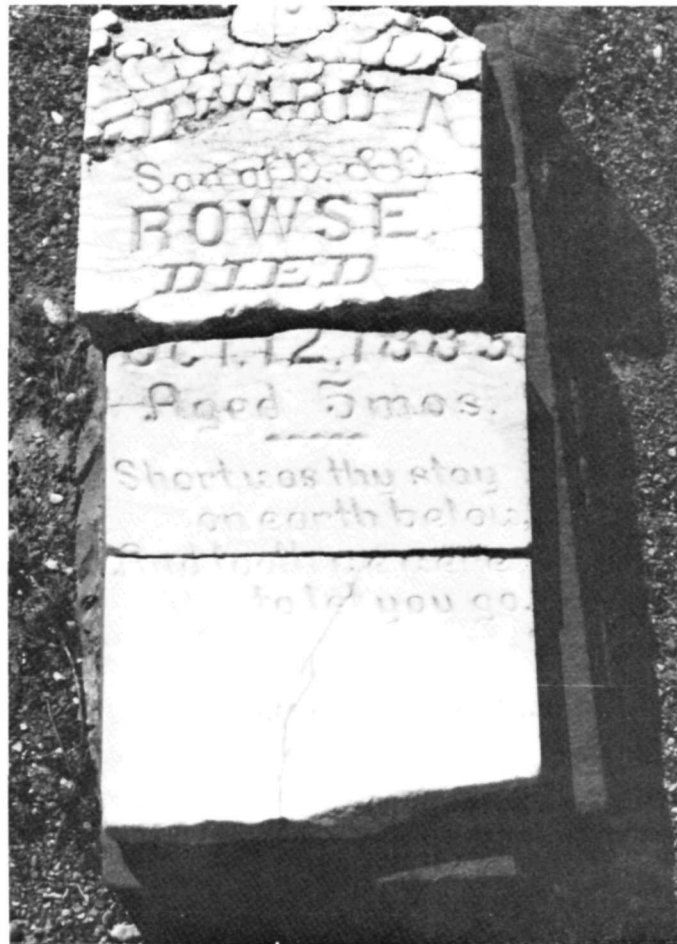 A
Son of
ROWSE.
DIED
Oct. 12, 1885.
Aged 5 mos.
Short was thy stay
on earth below.
And loath we were
to let you go.